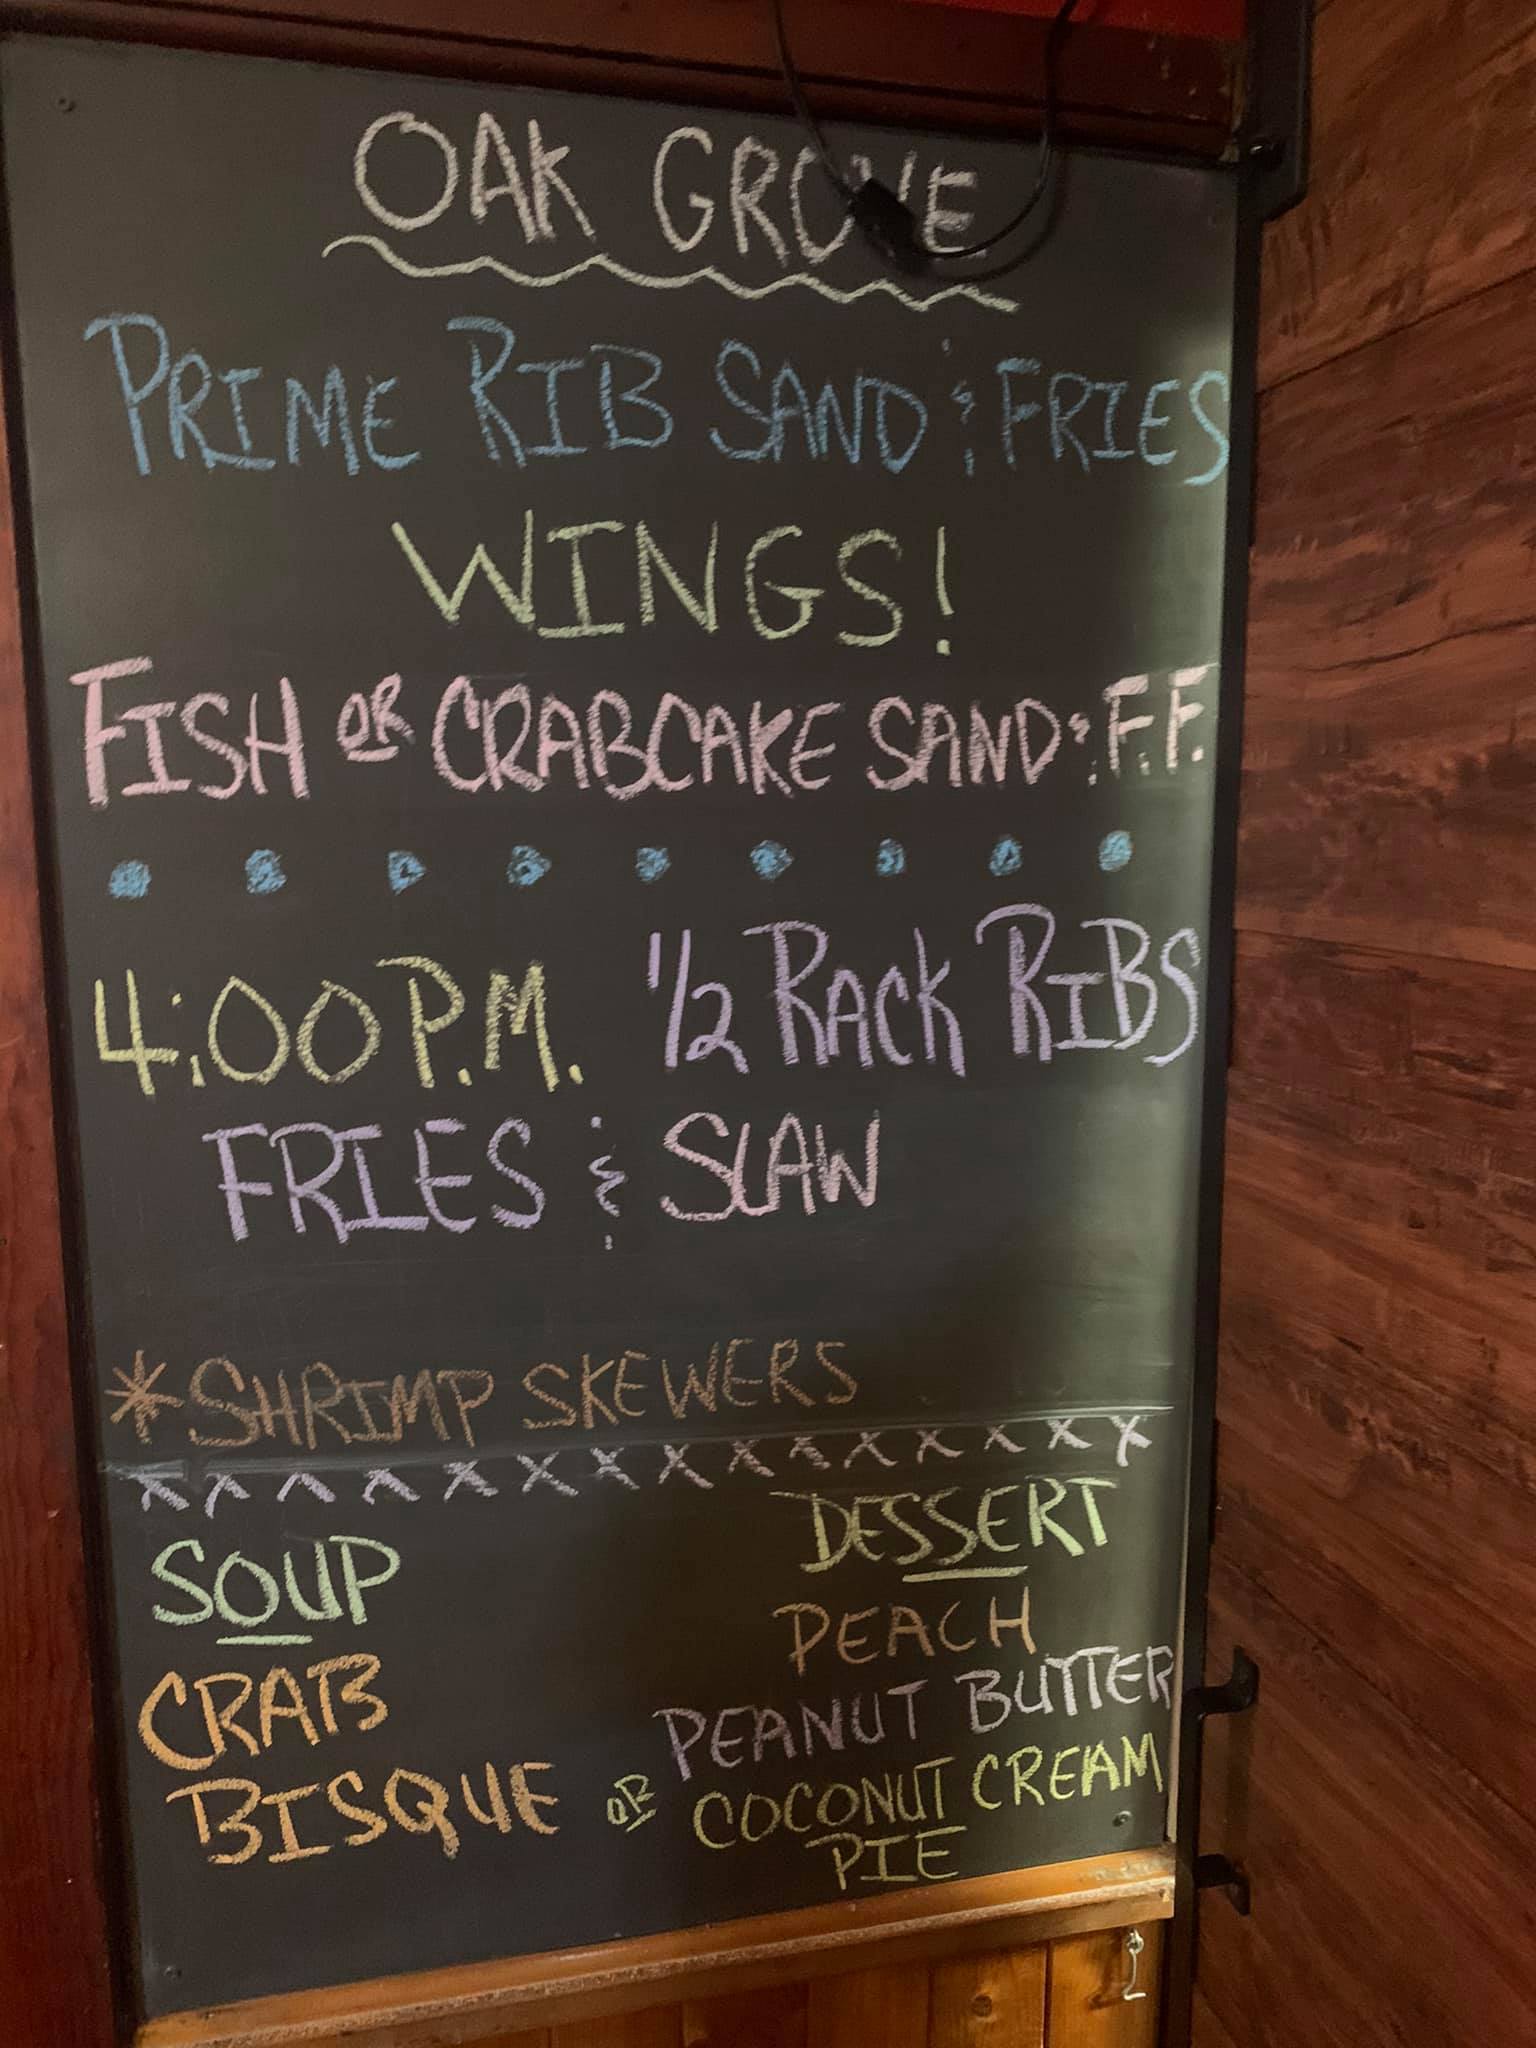 OAK GROVE
PRIME RIB SAND & FRIES
WINGS!
FISH OR CRABCAKE SAND & F.F.
4:00 P.M. 1/2 RACK RIBS
FRIES & SLAW
*SHRIMP SKEWERS
X X X X X X X X X X X X X X X
SOUP
CRAB
BISQUE
DESSERT
PEACH
PEANUT BUTTER
OR COCONUT CREAM
PIE